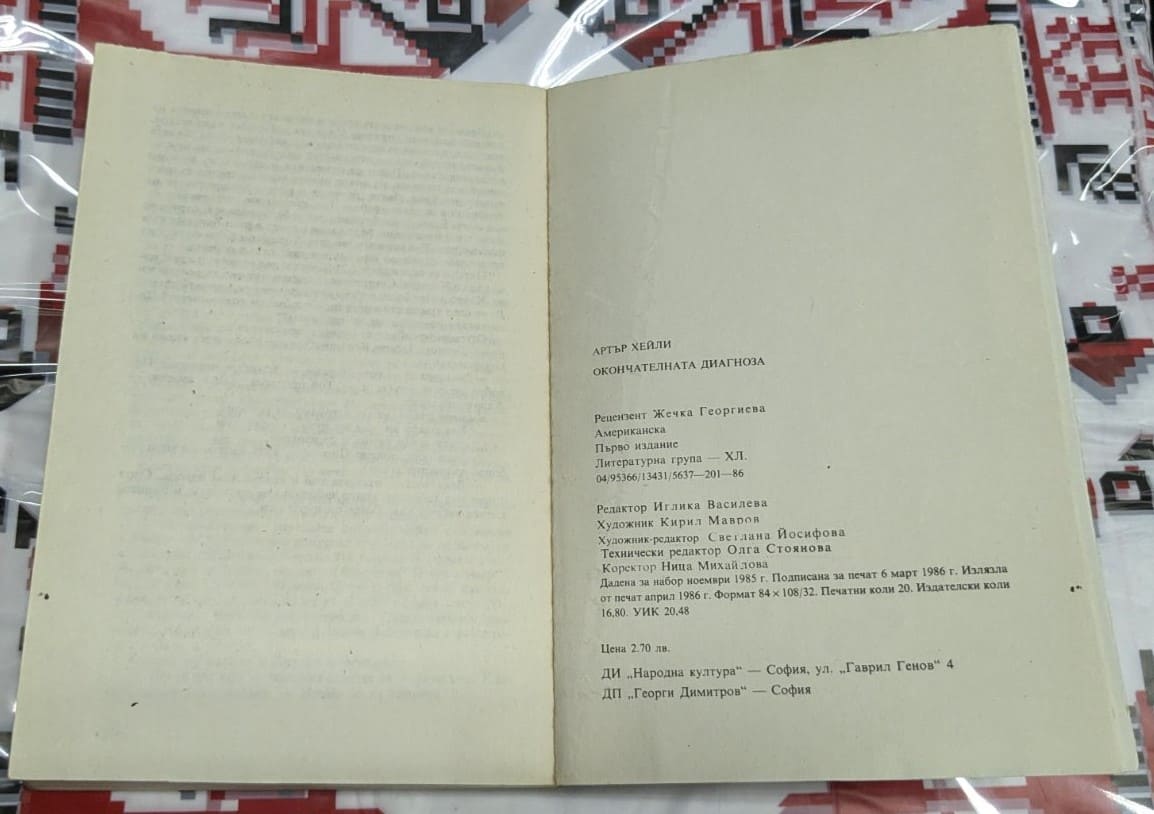 АРТЪР ХЕЙЛИ
ОКОНЧАТЕЛНАТА ДИАГНОЗА
Рецензент Жечка Георгиева
Американска
Първо издание
Литературна група — ХЛ.
04/95366/13431/5637—201—86
Редактор Иглика Василева
Художник Кирил Мавров
Художник-редактор Светлана Йосифова
Технически редактор Олга Стоянова
Коректор Ница Михайлова
Дадена за набор ноември 1985 г. Подписана за печат 6 март 1986 г. Излязла
от печат април 1986 г. Формат 84 × 108/32. Печатни коли 20. Издателски коли
16,80. УИК 20,48
Цена 2.70 лв.
ДИ „Народна култура“ — София, ул. „Гаврил Генов“ 4
ДП „Георги Димитров“ — София